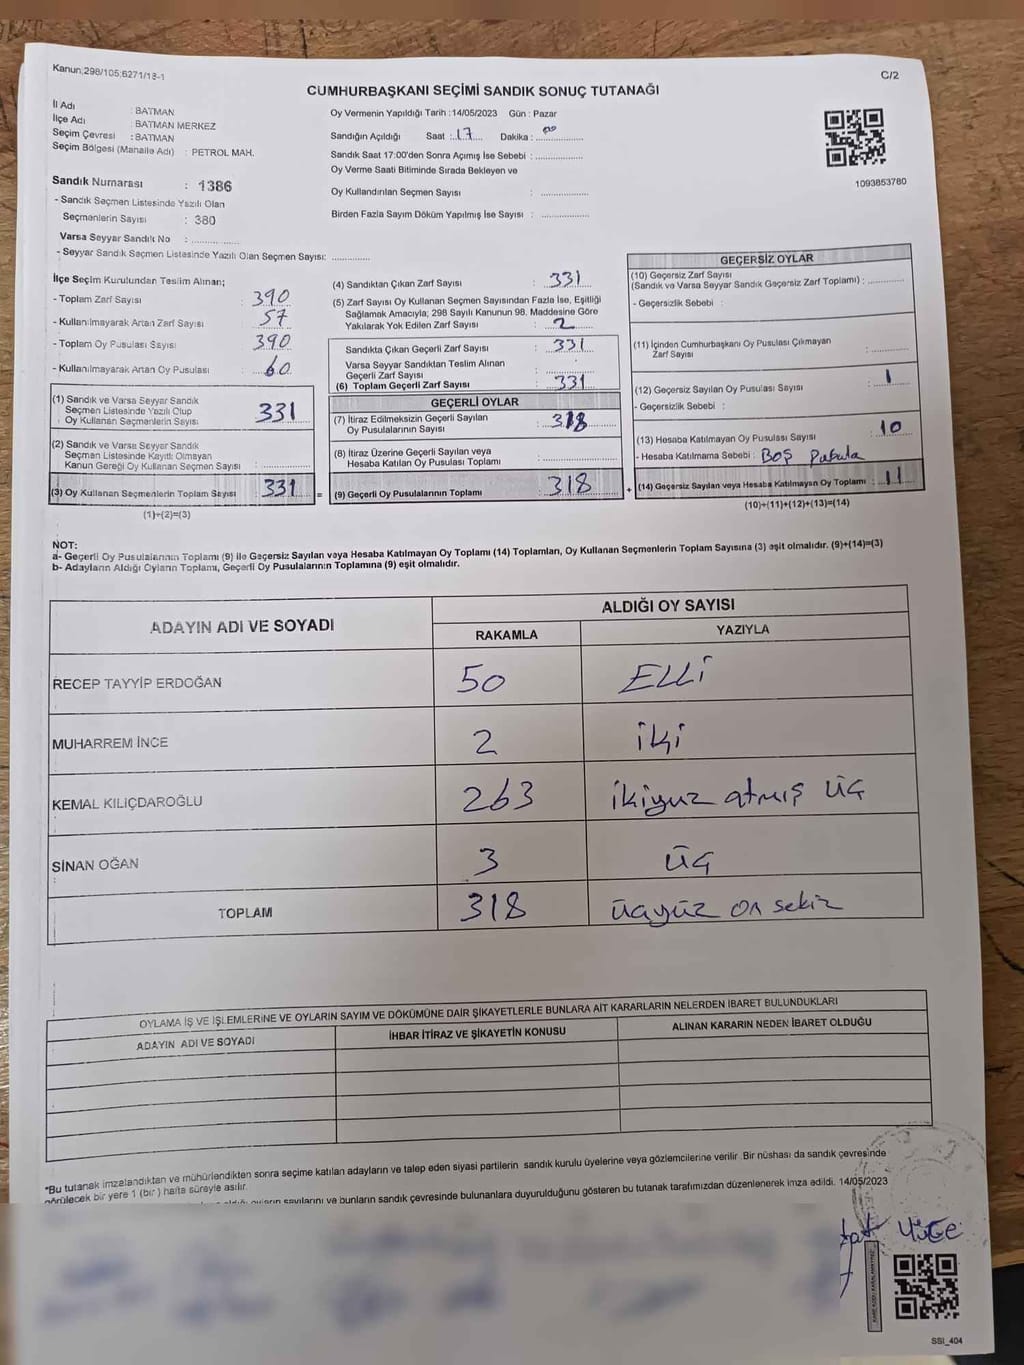 Kanun:298/105;6271/18-1
C/2
CUMHURBAŞKANI SEÇİMİ SANDIK SONUÇ TUTANAĞI
İl Adı : BATMAN
İlçe Adı : BATMAN MERKEZ
Seçim Çevresi : BATMAN
Seçim Bölgesi (Mahalle Adı) : PETROL MAH.
Oy Vermenin Yapıldığı Tarih : 14/05/2023 Gün : Pazar
Sandığın Açıldığı Saat : 17 Dakika : 00
Sandık Saat 17:00'den Sonra Açımış İse Sebebi :
Oy Verme Saati Bitiminde Sırada Bekleyen ve
Oy Kullandırılan Seçmen Sayısı :
Birden Fazla Sayım Döküm Yapılmış İse Sayısı :
1093853780
Sandık Numarası : 1386
- Sandık Seçmen Listesinde Yazılı Olan
Seçmenlerin Sayısı : 380
Varsa Seyyar Sandık No :
- Seyyar Sandık Seçmen Listesinde Yazılı Olan Seçmen Sayısı:
İlçe Seçim Kurulundan Teslim Alınan;
- Toplam Zarf Sayısı : 390
- Kullanılmayarak Artan Zarf Sayısı : 57
- Toplam Oy Pusulası Sayısı : 390
- Kullanılmayarak Artan Oy Pusulası : 60
(1) Sandık ve Varsa Seyyar Sandık
Seçmen Listesinde Yazılı Olup
Oy Kullanan Seçmenlerin Sayısı : 331
(2) Sandık ve Varsa Seyyar Sandık
Seçmen Listesinde Kayıtlı Olmayan
Kanun Gereği Oy Kullanan Seçmen Sayısı :
(3) Oy Kullanan Seçmenlerin Toplam Sayısı : 331 =
(1)+(2)=(3)
(4) Sandıktan Çıkan Zarf Sayısı : 331
(5) Zarf Sayısı Oy Kullanan Seçmen Sayısından Fazla İse, Eşitliği
Sağlamak Amacıyla; 298 Sayılı Kanunun 98. Maddesine Göre
Yakılarak Yok Edilen Zarf Sayısı : 2
Sandıkta Çıkan Geçerli Zarf Sayısı : 331
Varsa Seyyar Sandıktan Teslim Alınan
Geçerli Zarf Sayısı :
(6) Toplam Geçerli Zarf Sayısı : 331
GEÇERLİ OYLAR
(7) İtiraz Edilmeksizin Geçerli Sayılan
Oy Pusulalarının Sayısı : 318
(8) İtiraz Üzerine Geçerli Sayılan veya
Hesaba Katılan Oy Pusulası Toplamı :
(9) Geçerli Oy Pusulalarının Toplamı : 318 +
GEÇERSİZ OYLAR
(10) Geçersiz Zarf Sayısı
(Sandık ve Varsa Seyyar Sandık Geçersiz Zarf Toplamı) :
- Geçersizlik Sebebi :
(11) İçinden Cumhurbaşkanı Oy Pusulası Çıkmayan
Zarf Sayısı :
(12) Geçersiz Sayılan Oy Pusulası Sayısı : 1
- Geçersizlik Sebebi :
(13) Hesaba Katılmayan Oy Pusulası Sayısı : 10
- Hesaba Katılmama Sebebi : Boş Pusula
(14) Geçersiz Sayılan veya Hesaba Katılmayan Oy Toplamı : 11
(10)+(11)+(12)+(13)=(14)
NOT:
a- Geçerli Oy Pusulalarının Toplamı (9) ile Geçersiz Sayılan veya Hesaba Katılmayan Oy Toplamı (14) Toplamları, Oy Kullanan Seçmenlerin Toplam Sayısına (3) eşit olmalıdır. (9)+(14)=(3)
b- Adayların Aldığı Oyların Toplamı, Geçerli Oy Pusulalarının Toplamına (9) eşit olmalıdır.
ADAYIN ADI VE SOYADI
ALDIĞI OY SAYISI
RAKAMLA YAZIYLA
RECEP TAYYİP ERDOĞAN 50 ELLİ
MUHARREM İNCE 2 iki
KEMAL KILIÇDAROĞLU 263 ikiyuz atmış üç
SİNAN OĞAN 3 üç
TOPLAM 318 üçyüz on sekiz
OYLAMA İŞ VE İŞLEMLERİNE VE OYLARIN SAYIM VE DÖKÜMÜNE DAİR ŞİKAYETLERLE BUNLARA AİT KARARLARIN NELERDEN İBARET BULUNDUKLARI
ADAYIN ADI VE SOYADI İHBAR İTİRAZ VE ŞİKAYETİN KONUSU ALINAN KARARIN NEDEN İBARET OLDUĞU
*Bu tutanak imzalandıktan ve mühürlendikten sonra seçime katılan adayların ve talep eden siyasi partilerin sandık kurulu üyelerine veya gözlemcilerine verilir. Bir nüshası da sandık çevresinde
görülecek bir yere 1 (bir) hafta süreyle asılır.
oyların sayılarını ve bunların sandık çevresinde bulunanlara duyurulduğunu gösteren bu tutanak tarafımızdan düzenlenerek imza edildi. 14/05/2023
SSI_404